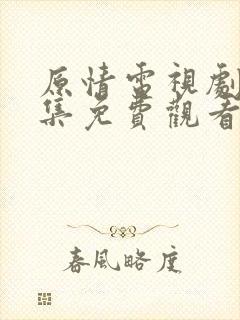 原情電視劇
集免費觀看
春風略度